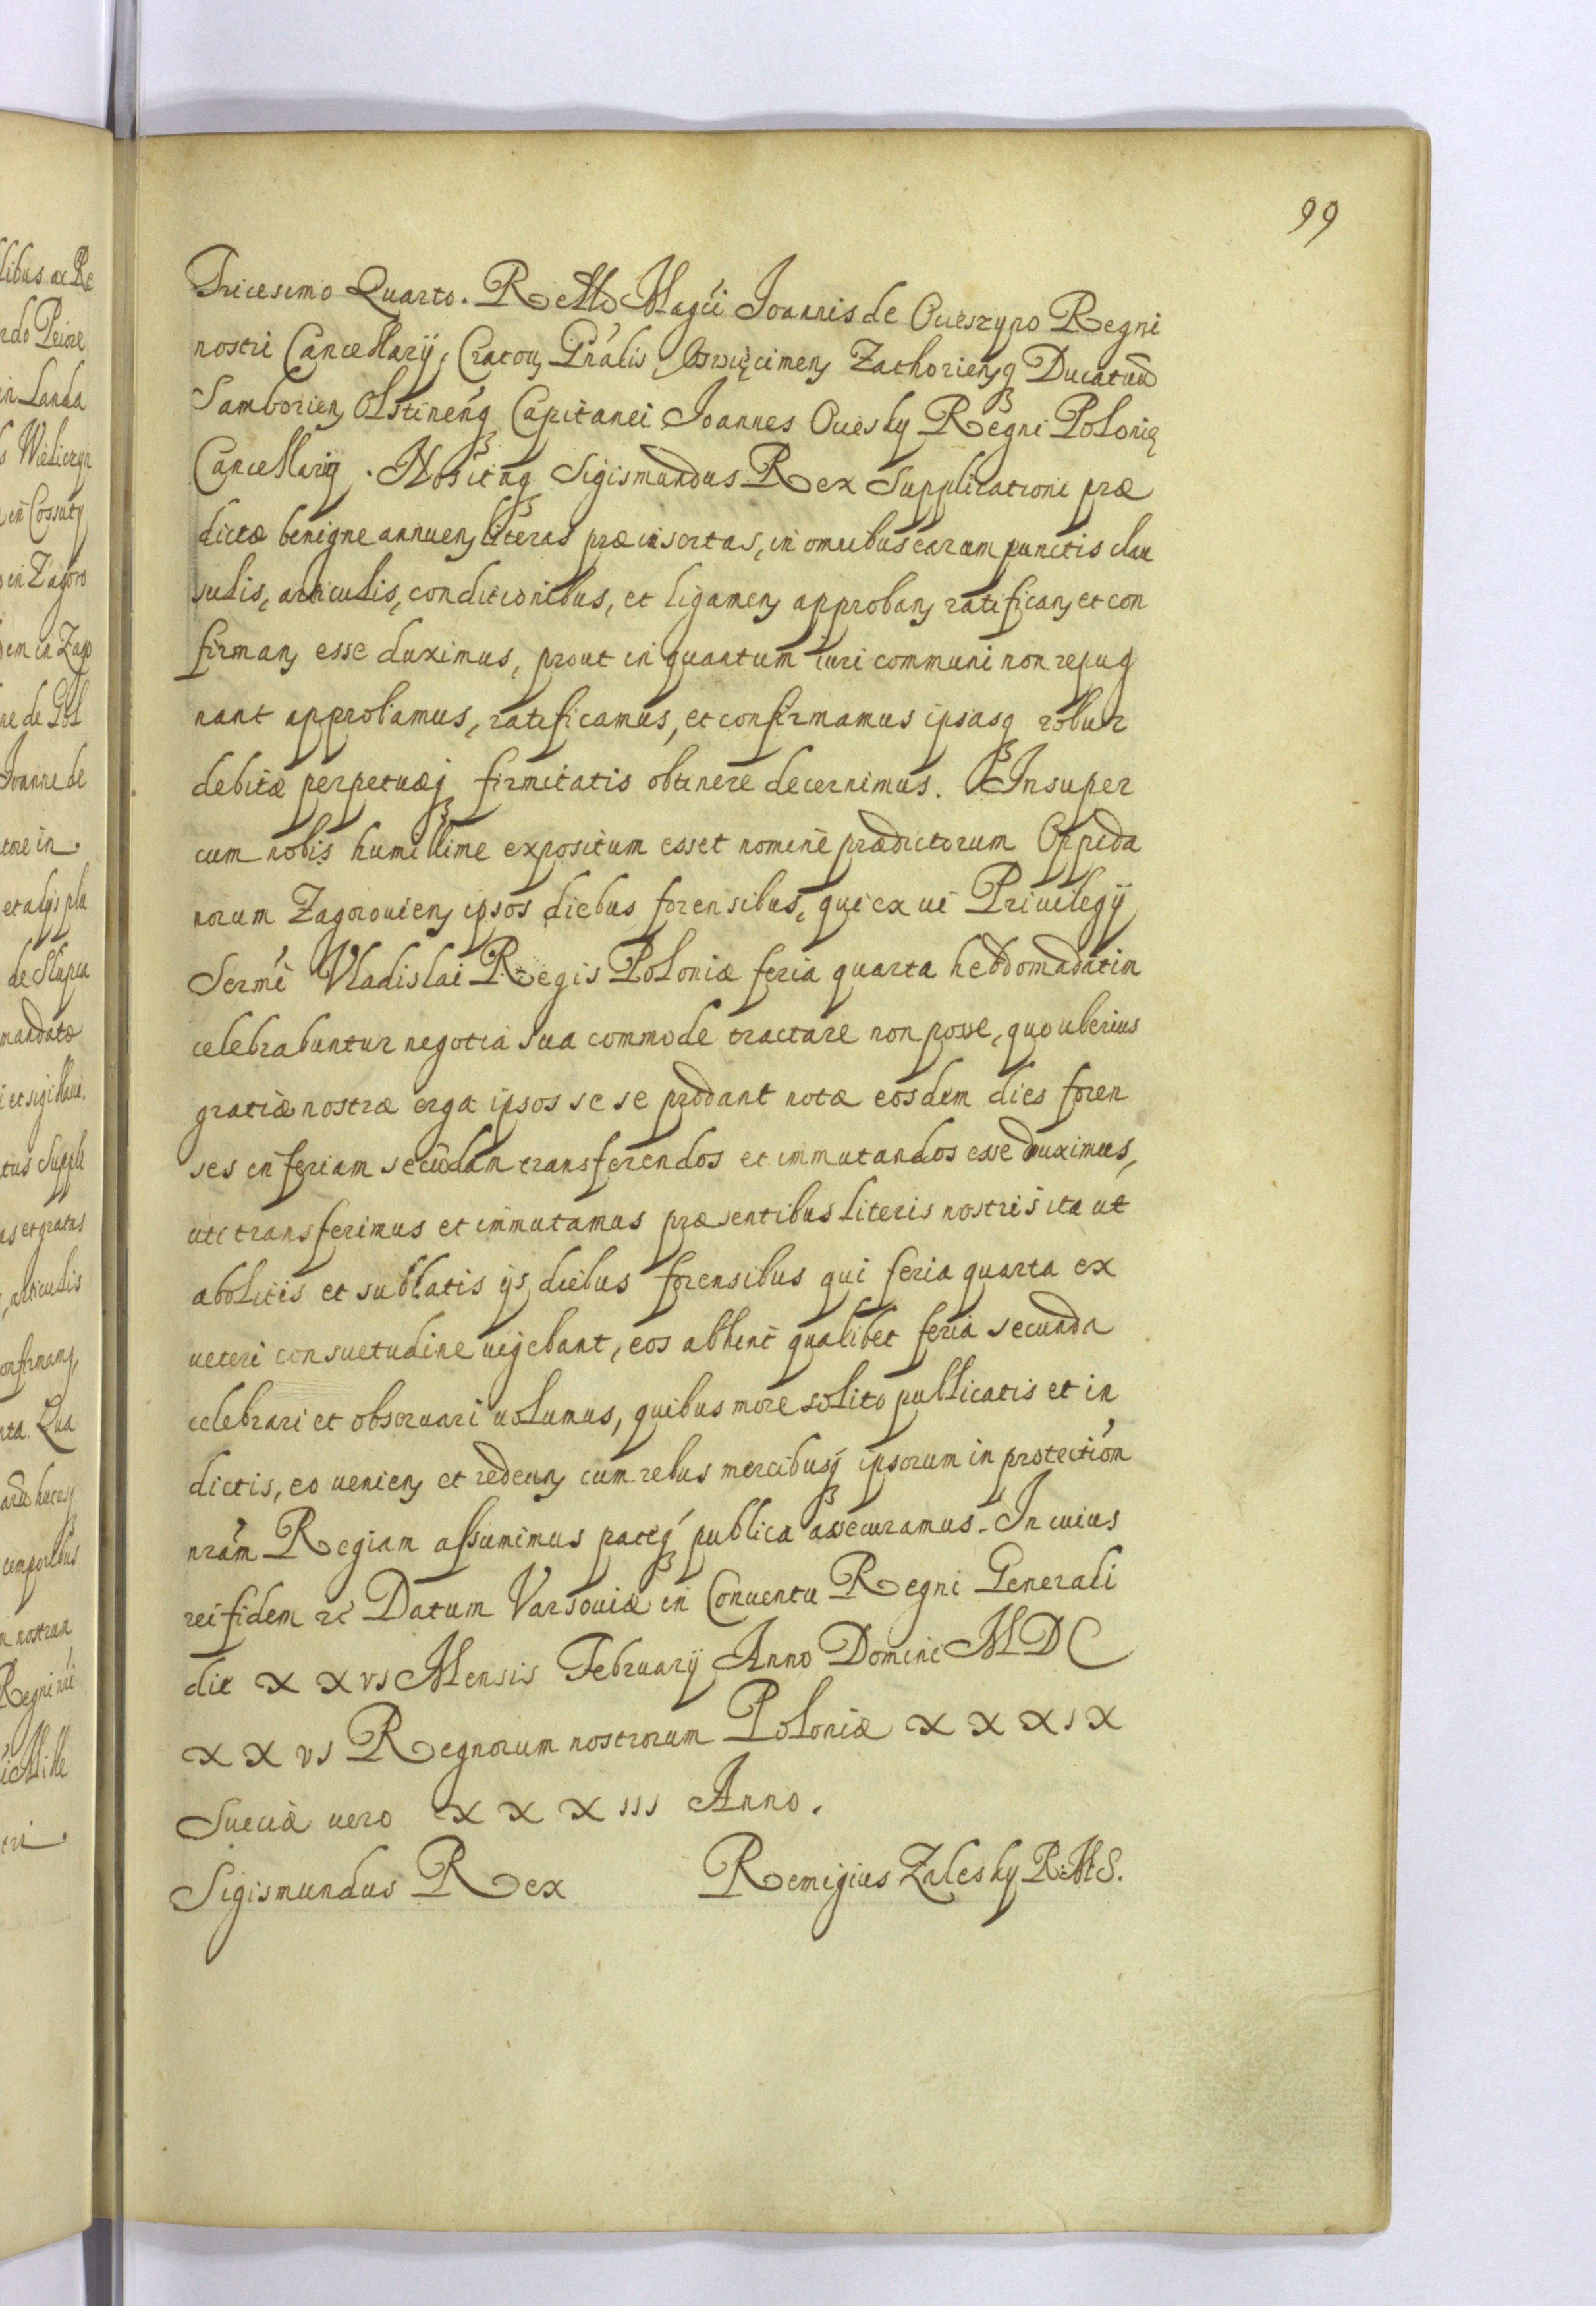 99
Tricesimo Quarto. Rello Magci Joannis de Ocieszyno Regni
nostri Cancellarij, Cracou, Gnalis, Oswięcimen, Zathorienq Ducatuu
Samborien, Olstinenq Capitanei Joannes Ociesky Regni Polonię
Cancellariq. Nos itaq Sigismundus Rex Supplicationi præ
dictæ benigne annuen, literas præinsertas, in omnibus earum punctis clau
sulis, articulis, conditionibus, et ligamen, approban, ratifican, et con
firman, esse duximus, prout in quantum iuri communi non repug
nant approbamus, ratificamus, et confirmamus ipsasq robur
debitæ perpetuæq firmitatis obtinere decernimus. Insuper
cum nobis humillime expositum esset nomine prædictorum Oppida
norum Zagorouien, ipsos diebus forensibus, qui ex ui Priuilegij
Sermi Vladislai Regis Poloniæ feria quarta hebdomadatim
celebrabuntur negotia sua commode tractare non posse, quo uberius
gratiæ nostræ erga ipsos se se prodant notæ eosdem dies foren
ses in feriam secudam transferendos et immutandos esse duximus,
uti transferimus et immutamus præsentibus literis nostris ita ut
abolitis et sublatis ijs diebus forensibus qui feria quarta ex
ueteri consuetudine uigebant, eos abhinc qualibet feria secunda
celebrari et obseruari uolumus, quibus more solito publicatis et in
dictis, eo uenien, et redeun, cum rebus mercibusq ipsorum in protection
nram Regiam assumimus paceq publica assecuramus. In cuius
rei fidem rc Datum Varsouiæ in Conuentu Regni Generali
die XXVI Mensis February Anno Domini MDC
XXVI Regnorum nostrorum Poloniæ XXXIX
Sueciæ uero XXXIII Anno.
Sigismundus Rex Remigius Zalesky R.M.S.
libus ac Re
in Landa
Wieliczyn
Joanne de
de Slupca
mandato
articulis
temporibus